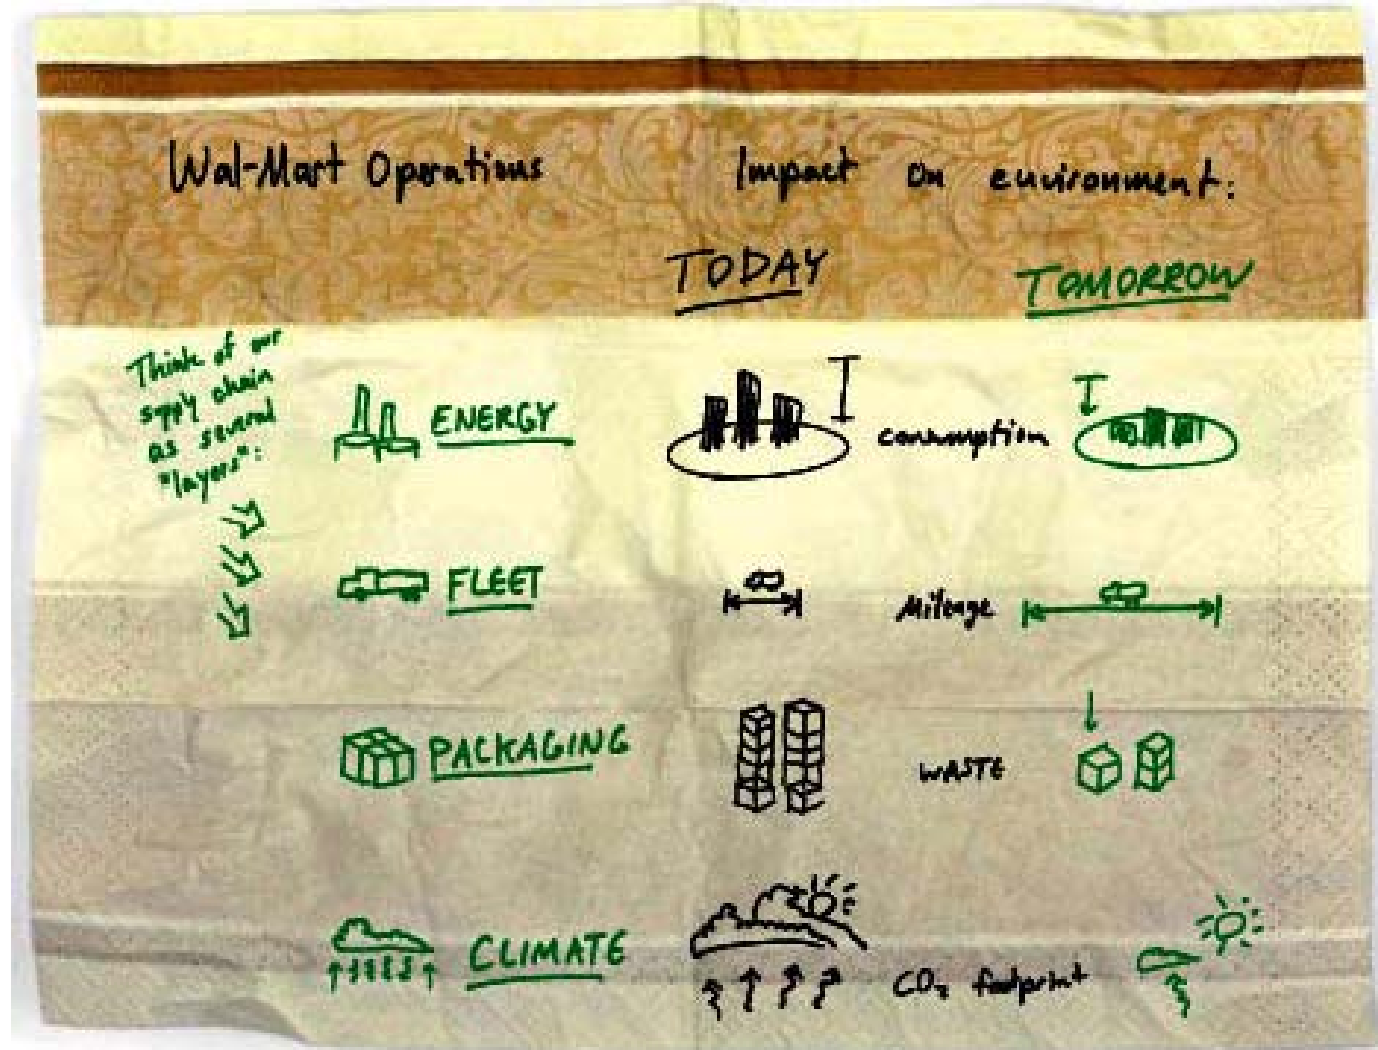 Wal-Mart Operations
Impact on environment:
TODAY
TOMORROW
Think of our
supply chain
as several
"layers":
ENERGY
consumption
FLEET
Mileage
PACKAGING
WASTE
CLIMATE
CO2 footprint